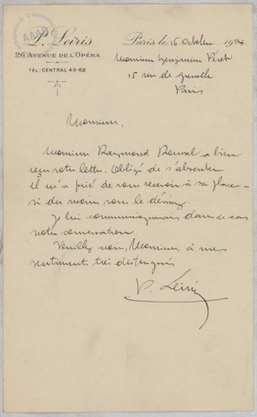 P. Leiris
26 AVENUE DE L'OPÉRA
TÉL: CENTRAL 49-62
Paris le 15 Octobre 192
Monsieur Benjamin Péret
15 rue de Grenelle
Paris
Monsieur,
Monsieur Raymond Roussel a bien
reçu votre lettre. Obligé de s'absenter
il m'a prié de vous recevoir à sa place
si du moins vous le désirez
Je lui communiquerais dans ce cas
notre conversation.
Veuillez croire, Monsieur, à mes
sentiments très distingués
P. Leiris